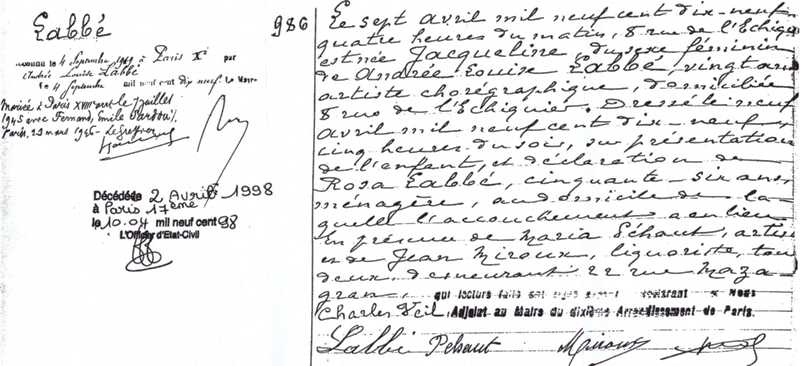 Labbé
le 4 Septembre 1919 à Paris Xe par
Andrée Louise Labbé
le 4 Septembre mil neuf cent dix neuf. Le Maire
Mariée à Paris XVIII le Juillet
1945 avec Fernand, Emile
Paris, 13 mars 1946 - Le Greffier
Décédée 2 Avril 1998
à Paris 17ème
le 10.04 mil neuf cent 98
L'Officier d'Etat-Civil
986
Le sept avril mil neuf cent dix-neuf
quatre heures du matin, 8 rue de l'Echiquier
est née Jacqueline, du sexe féminin
de Andrée Louise Labbé, vingt ans
artiste chorégraphique, domiciliée
8 rue de l'Echiquier, Dressé le neuf
avril mil neuf cent dix-neuf,
cinq heures du soir, sur présentation
de l'enfant, et déclaration de
Rosa Labbé, cinquante-six ans
ménagère, au domicile de la-
quelle l'accouchement a eu lieu
En présence de Maria Echaut, artiste
et de Jean Miroux, liquoriste, tous
deux, demeurant 22 rue Maza-
gran, qui lecture faite ont signé Nous
Charles Veil, Adjoint au Maire du dixième Arrondissement de Paris.
Labbé Miroux